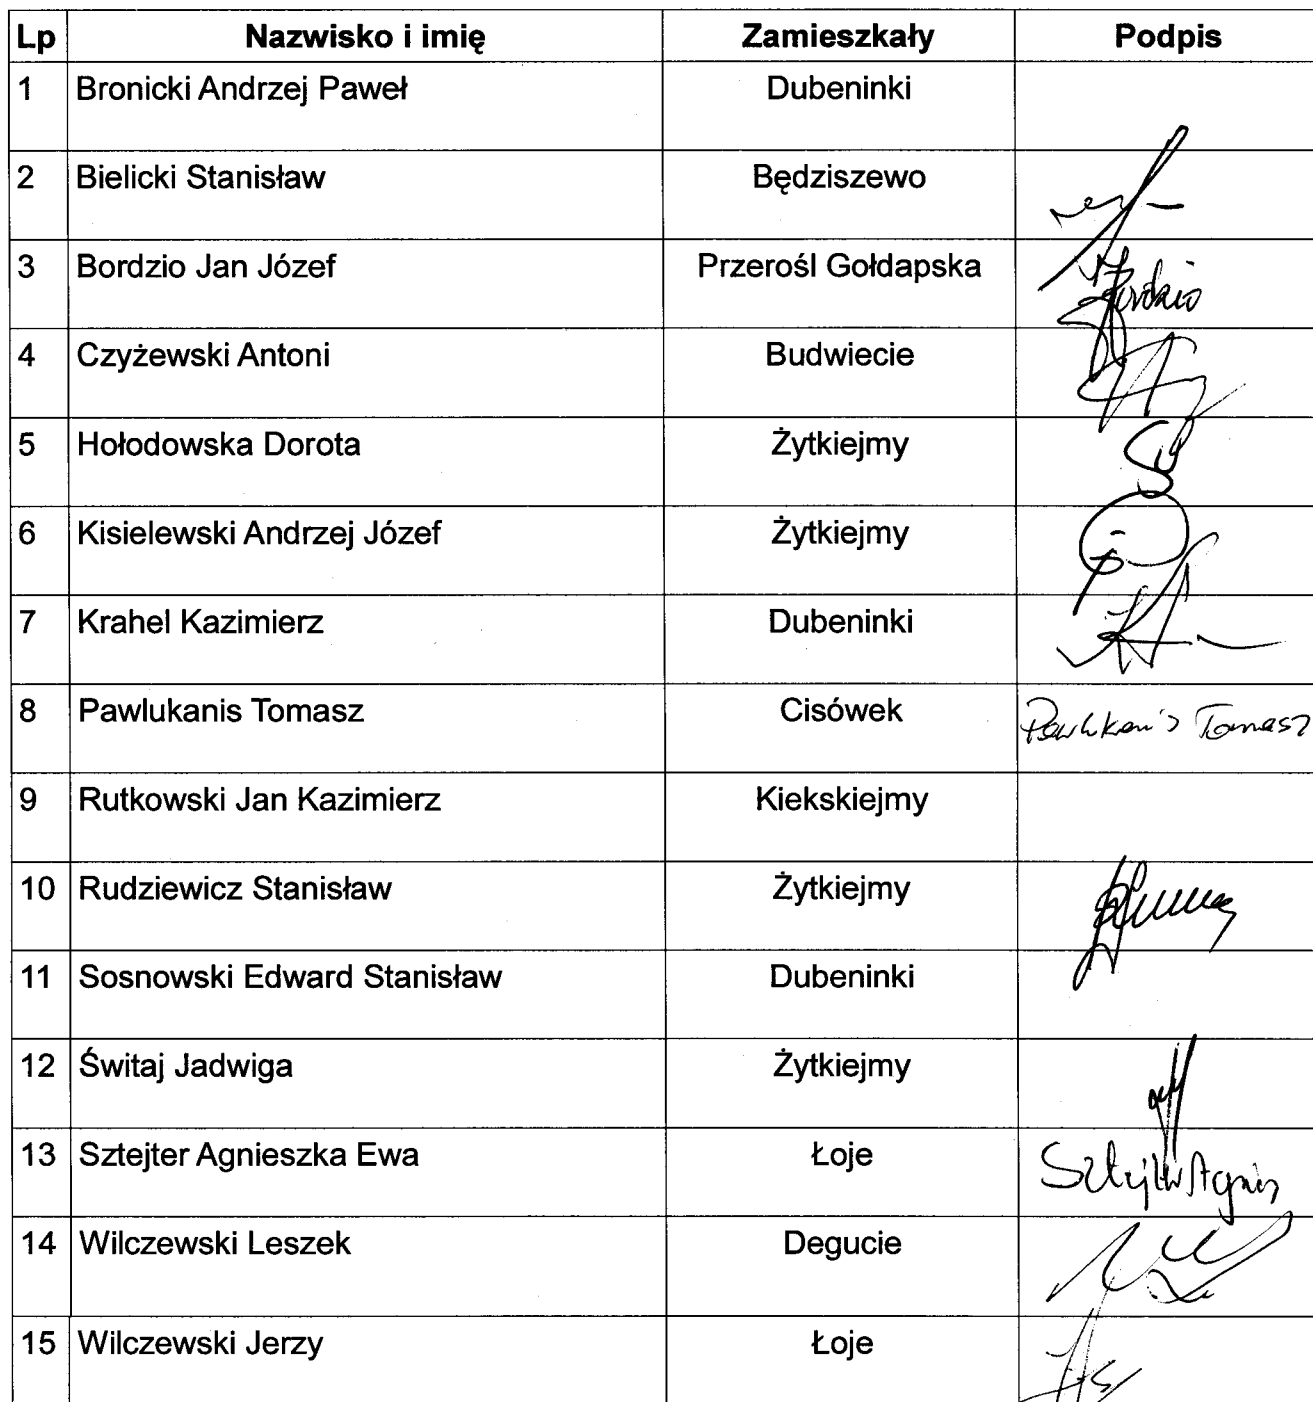 Lp Nazwisko i imię Zamieszkały Podpis
1 Bronicki Andrzej Paweł Dubeninki
2 Bielicki Stanisław Będziszewo
3 Bordzio Jan Józef Przerośl Gołdapska Bordzio
4 Czyżewski Antoni Budwiecie
5 Hołodowska Dorota Żytkiejmy
6 Kisielewski Andrzej Józef Żytkiejmy
7 Krahel Kazimierz Dubeninki
8 Pawlukanis Tomasz Cisówek Pawlukanis Tomasz
9 Rutkowski Jan Kazimierz Kiekskiejmy
10 Rudziewicz Stanisław Żytkiejmy
11 Sosnowski Edward Stanisław Dubeninki
12 Świtaj Jadwiga Żytkiejmy
13 Sztejter Agnieszka Ewa Łoje Sztejter Agnies
14 Wilczewski Leszek Degucie
15 Wilczewski Jerzy Łoje